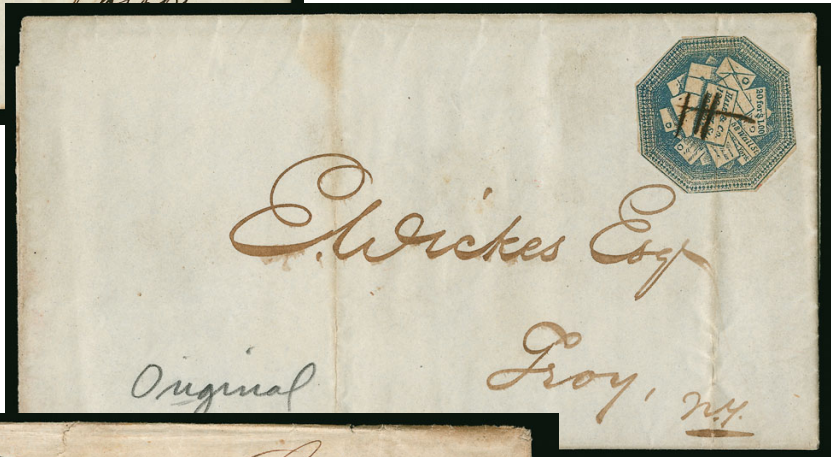 20 for $1.00
E. Wickes Esqr
Troy,
N.Y.
Original